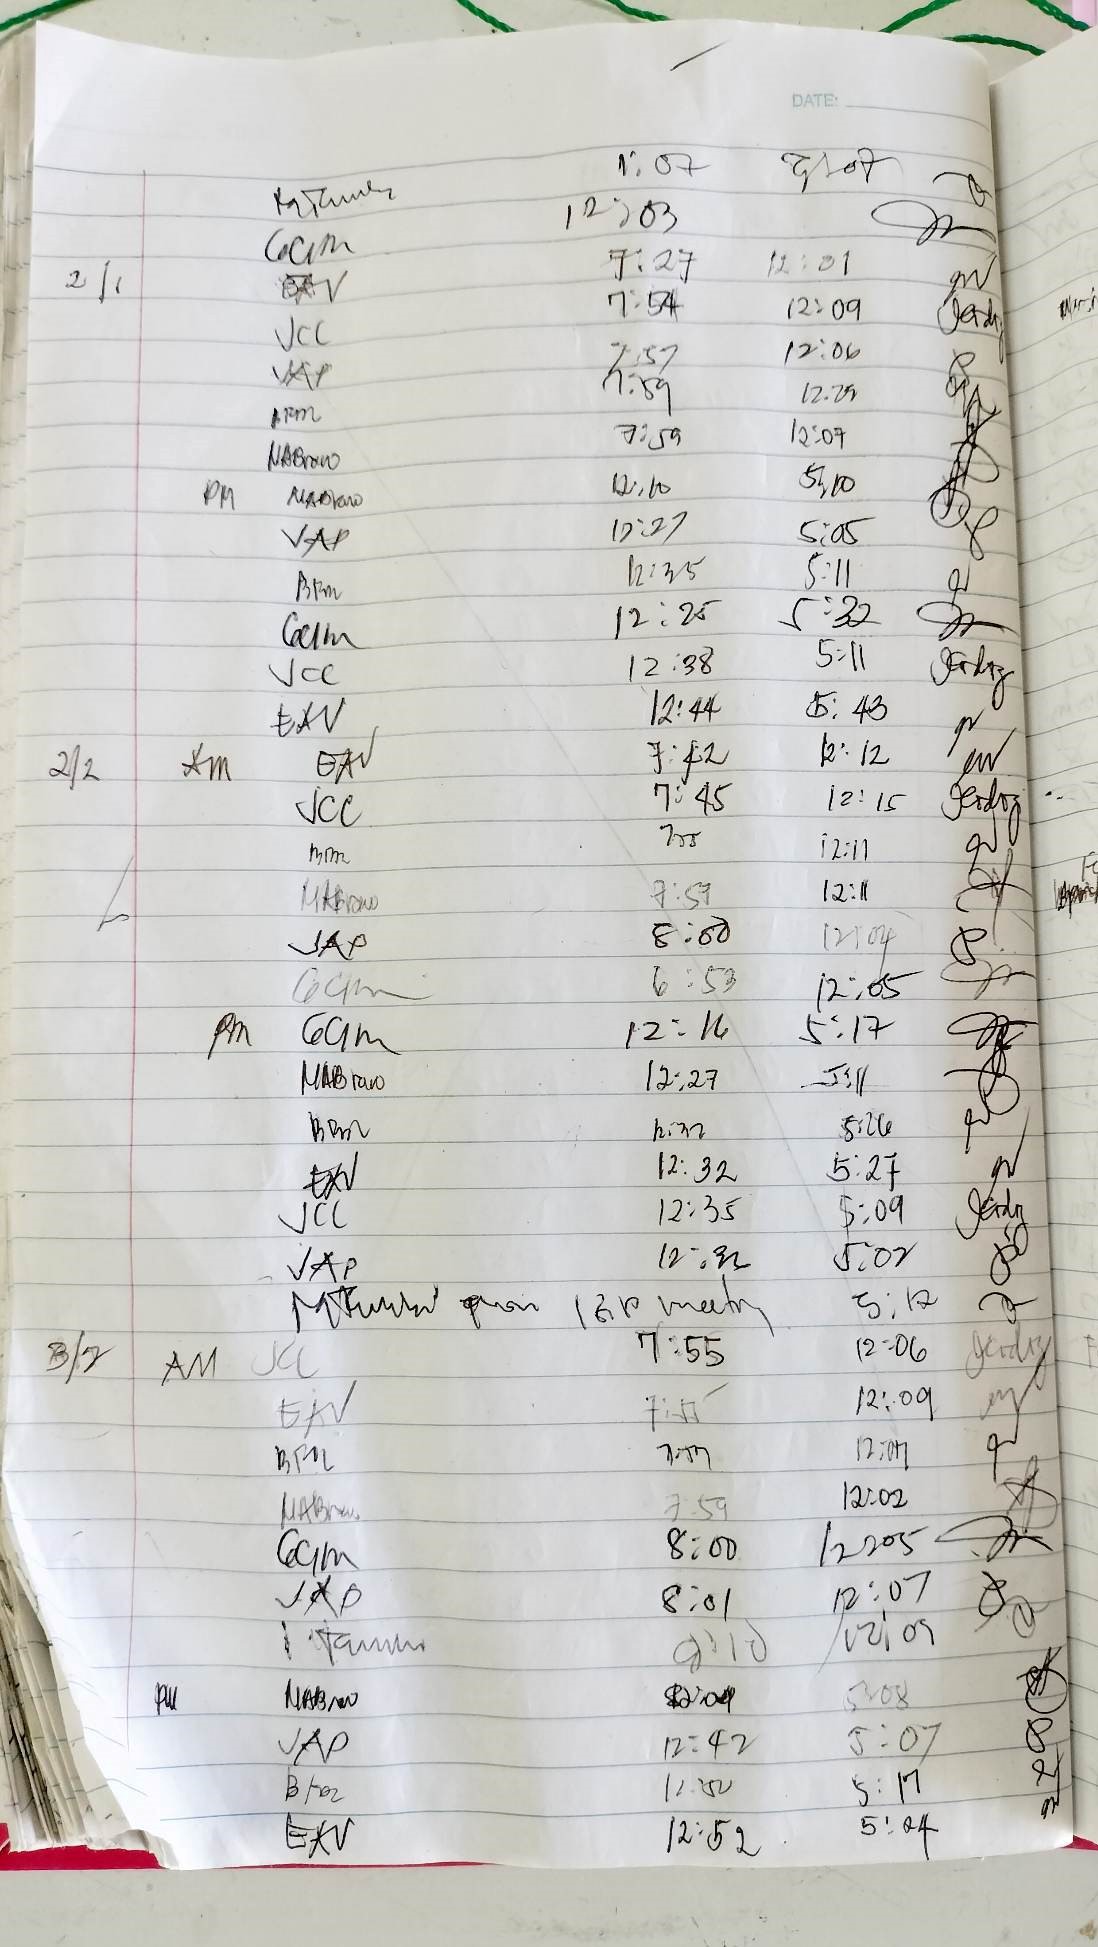 DATE:
1:07
GCJM 12:03
2/1 EAV 7:27 12:01
JCC 7:54 12:09 Jerdrz
VAP 7:57 12:06
BFM 7:59 12:29
NABravo 7:59 12:07
PM NABravo 12:10 5:10
VAP 12:27 5:05
BFM 12:35 5:11
GCJM 12:25 5:32
JCC 12:38 5:11 Jerdrz
EAV 12:44 5:43
2/2 AM EAV 7:42 12:12
JCC 7:45 12:15 Jerdrz
BFM 12:11
NABravo 7:59 12:11
VAP 8:00 12:04
GCJM 6:53 12:05
PM GCJM 12:16 5:17
NABravo 12:27 5:11
BFM 12:32 5:26
EAV 12:32 5:27
JCC 12:35 5:09 Jerdrz
VAP 12:32 5:02
meeting 5:12
3/2 AM JCC 7:55 12:06 Jerdrz
EAV 7:55 12:09
BFM 12:07
NABravo 7:59 12:02
GCJM 8:00 12:05
VAP 8:01 12:07
12:09
PM NABravo 12:04 5:08
VAP 12:42 5:07
BFM 12:50 5:17
EAV 12:52 5:24